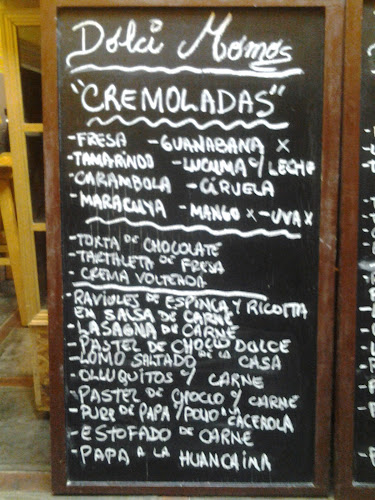 Dolci Momos
"CREMOLADAS"
-FRESA -GUANABANA x
-TAMARINDO -LUCUMA c/ LECHE
-CARAMBOLA -CIRUELA
-MARACUYA -MANGO x -UVA x
-TORTA DE CHOCOLATE
-TARTALETA DE FRESA
-CREMA VOLTEADA
-RAVIOLES DE ESPINCA Y RICOTTA
EN SALSA DE CARNE
-LASAGNA DE CARNE
-PASTEL DE CHOCLO DULCE
-LOMO SALTADO DE LA CASA
-OLLUQUITOS c/ CARNE
-PASTEL DE CHOCLO Y CARNE
-PURE DE PAPA Y POLLO A LA CACEROLA
-ESTOFADO DE CARNE
-PAPA A LA HUANCAINA